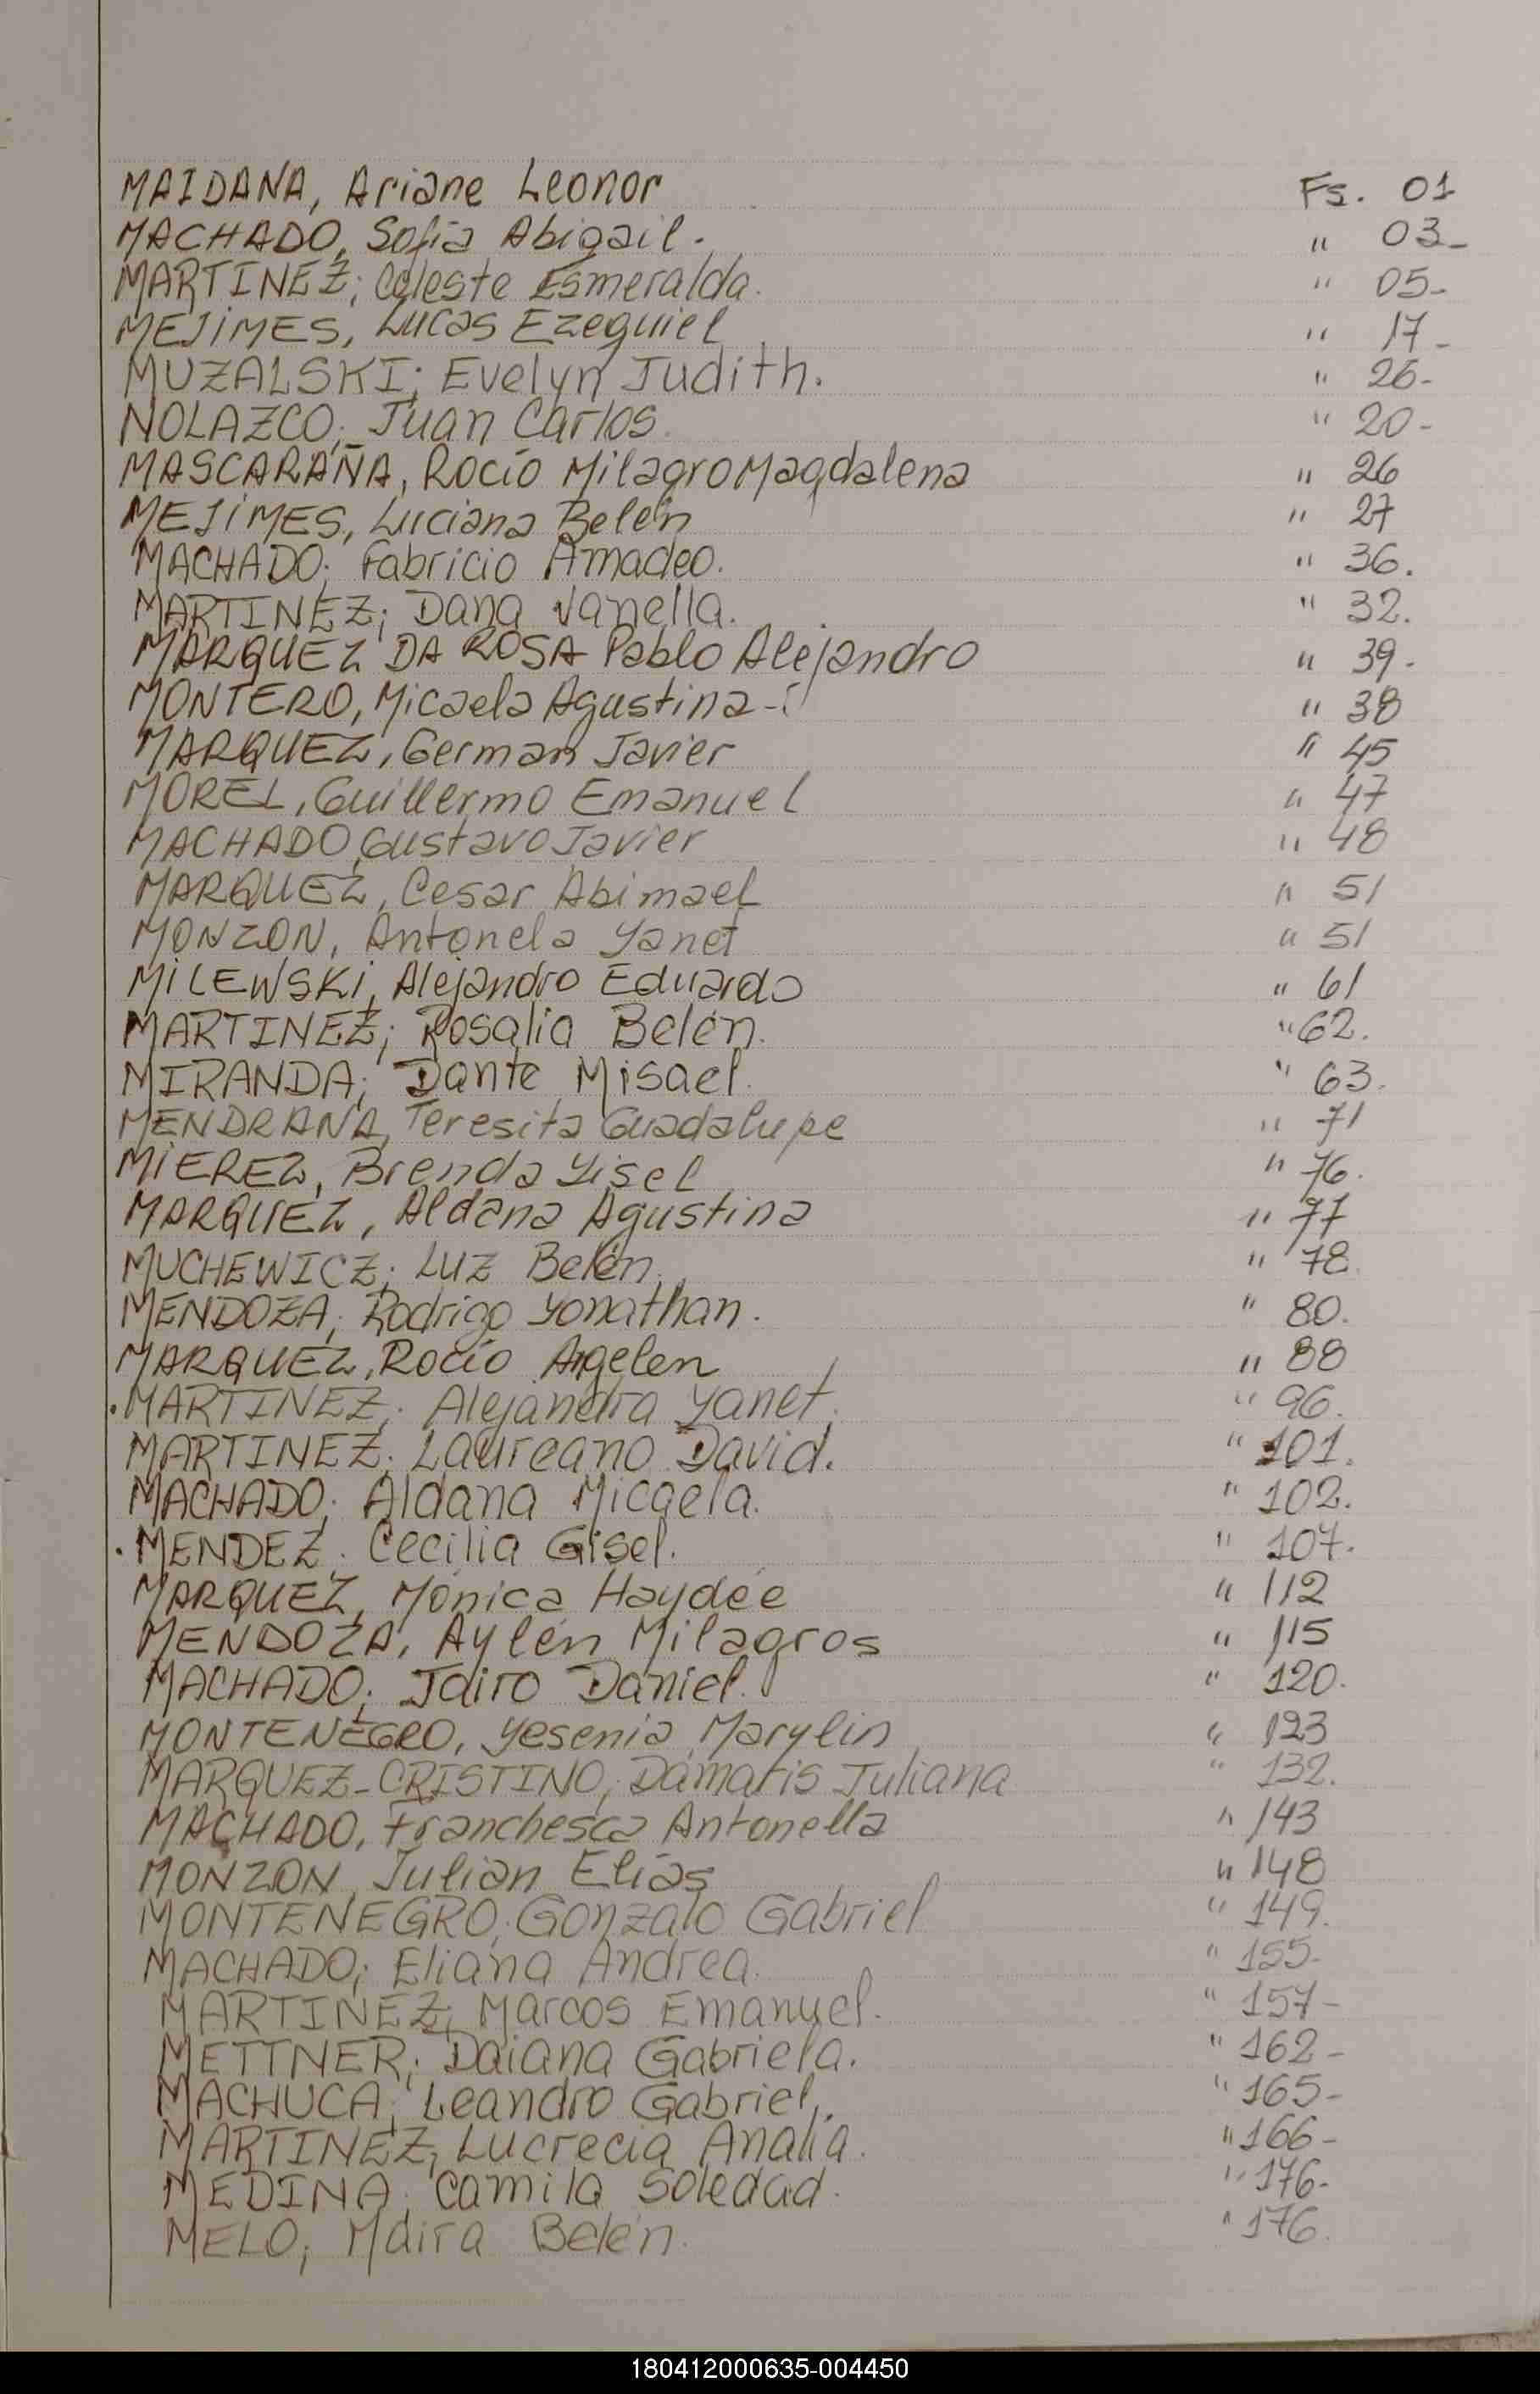 MAIDANA, Ariane Leonor Fs. 01
MACHADO, Sofía Abigail. " 03-
MARTINEZ; Celeste Esmeralda. " 05-
MEJIMES, Lucas Ezequiel " 17-
MUZALSKI; Evelyn Judith. " 26-
NOLAZCO; Juan Carlos. " 20-
MASCARAÑA, Rocío Milagro Magdalena " 26
MEJIMES, Luciana Belén " 27
MACHADO; Fabricio Amadeo. " 36.
MARTINEZ; Dana Vanella. " 32.
MARQUEZ DA ROSA Pablo Alejandro " 39-
MONTERO, Micaela Agustina- " 38
MARQUEZ, German Javier " 45
MOREL, Guillermo Emanuel " 47
MACHADO, Gustavo Javier " 48
MARQUEZ, Cesar Abimael " 51
MONZON, Antonela Yanet " 51
MILEWSKI, Alejandro Eduardo " 61
MARTINEZ; Rosalia Belén. " 62.
MIRANDA; Dante Misael. " 63.
MENDRANA, Teresita Guadalupe " 71
MIEREZ, Brenda Yisel " 76.
MARQUEZ, Aldana Agustina " 77
MUCHEWICZ; Luz Belén. " 78.
MENDOZA; Rodrigo Yonathan. " 80.
MARQUEZ, Rocío Angelen " 88
.MARTINEZ; Alejandra Yanet. " 96.
MARTINEZ; Laureano David. " 101.
MACHADO; Aldana Micaela. " 102.
.MENDEZ. Cecilia Gisel. " 107.
MARQUEZ, Mónica Haydée " 112
MENDOZA, Aylén Milagros " 115
MACHADO; Jairo Daniel. " 120.
MONTENEGRO, Yesenia Marylin " 123
MARQUEZ-CRISTINO; Damaris Juliana " 132.
MACHADO, Franchesca Antonella " 143
MONZON, Julian Elías " 148
MONTENEGRO; Gonzalo Gabriel " 149.
MACHADO; Eliana Andrea. " 155-
MARTINEZ; Marcos Emanuel. " 157-
METTNER; Daiana Gabriela. " 162-
MACHUCA; Leandro Gabriel. " 165-
MARTINEZ; Lucrecia Analía. " 166-
MEDINA; Camila Soledad. " 176-
MELO; Maira Belén. " 176.
180412000635-004450